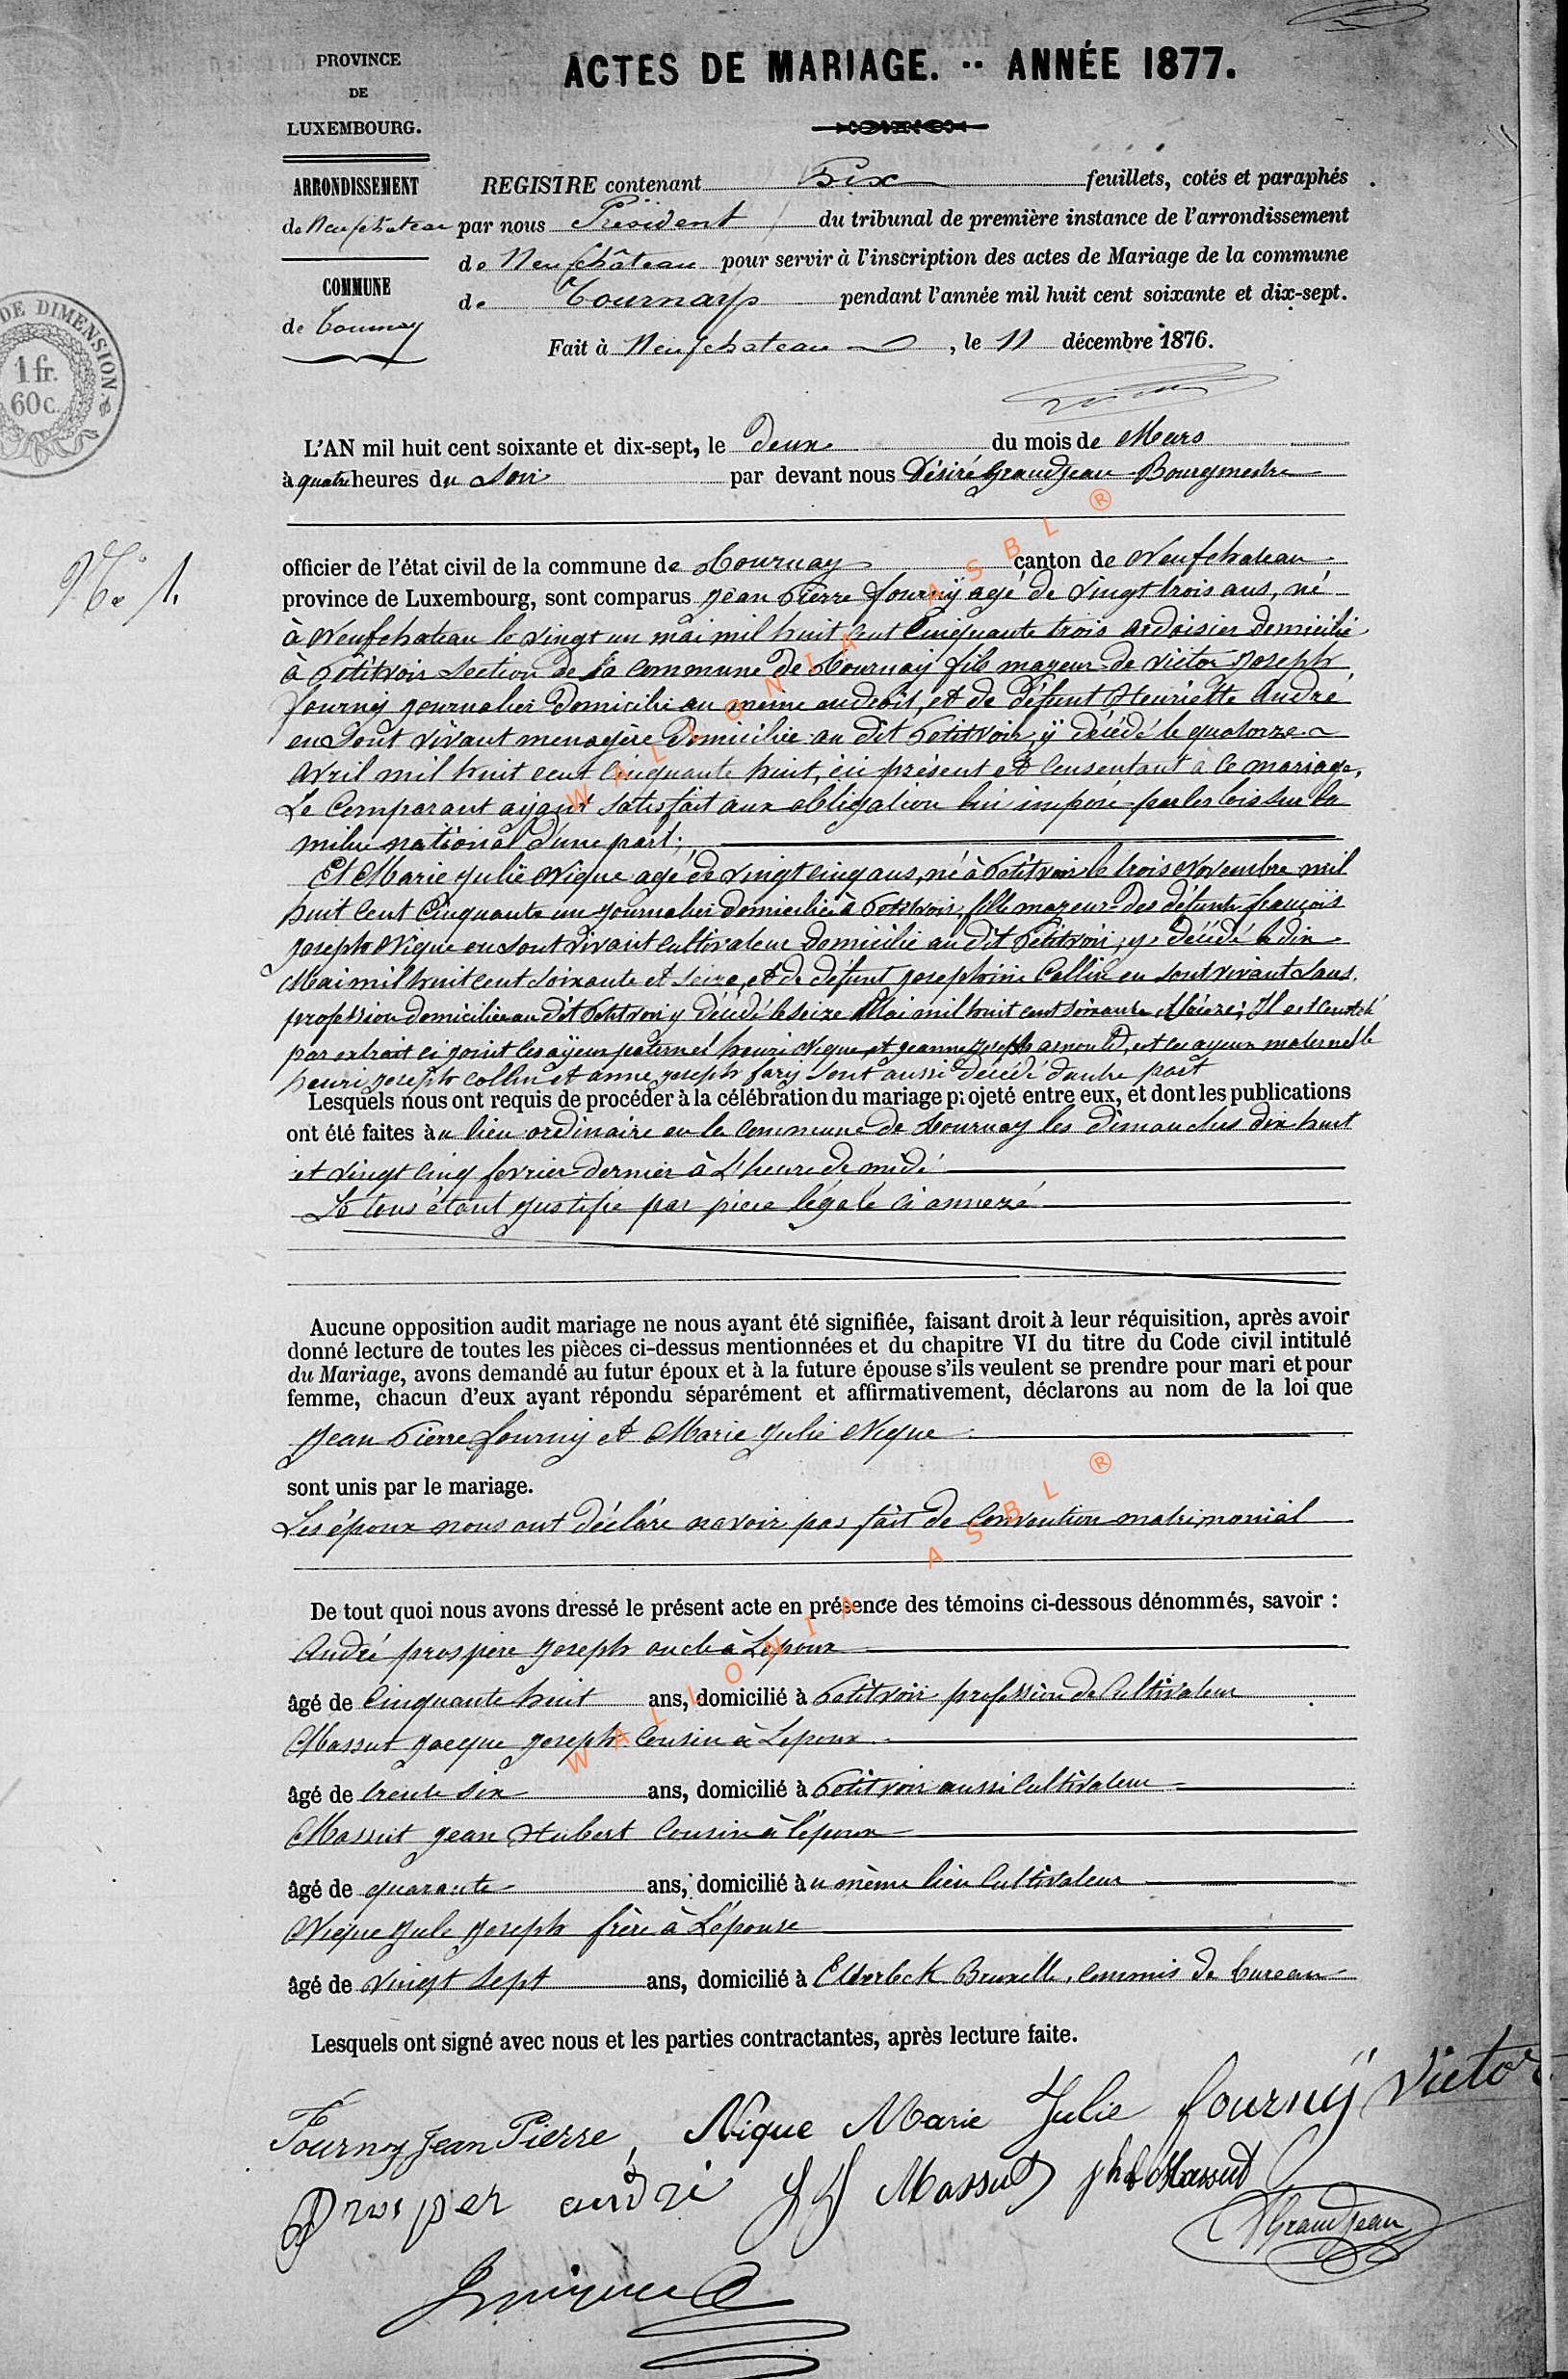 PROVINCE
DE
LUXEMBOURG.
ACTES DE MARIAGE. ·· ANNÉE 1877.
ARRONDISSEMENT
de Neufchateau
COMMUNE
de Tournay
REGISTRE contenant Six feuillets, cotés et paraphés
par nous Président du tribunal de première instance de l'arrondissement
de Neufchâteau pour servir à l'inscription des actes de Mariage de la commune
de Tournay pendant l'année mil huit cent soixante et dix-sept.
Fait à Neufchateau, le 11 décembre 1876.
DE DIMENSION
1 fr.
60 c.
L'AN mil huit cent soixante et dix-sept, le deux du mois de Mars
à quatre heures du Soir par devant nous Désiré Grandjean Bourgmestre
N° 1.
officier de l'état civil de la commune de Tournay canton de Neufchateau
province de Luxembourg, sont comparus Jean Pierre fournÿ agé de vingt trois ans, né
à Neufchateau le vingt un mai mil huit cent cinquante trois ardoisier domicilié
à Petitvoir section de la commune de Tournay fils mageur de victor Joseph
fourny journalier domicilié au même endroit, et de défunt Henriette André
en sont vivant menagère domiciliée au dit Petitvoir, ÿ décédé le quatorze
avril mil huit cent cinquante huit, ici présent et consentant à ce mariage,
Le comparant ayant satisfait aux obligation lui imposé par les lois sur la
milice national d'une part;
Et Marie Julie Nique agé de vingt cinq ans, né à Petitvoir le trois Novembre mil
huit cent cinquante un journalier domicilié à Petitvoir, fille mageur des défunts françois
Joseph Nique en sont vivant cultivateur domicilié au dit Petitvoir, y décédé le dix
Mai mil huit cent soixante et seize, et de défunt Josephine Collin en sont vivant sans
profession domiciliée au dit Petitvoir y décédé le seize Mai mil huit cent soixante et seize; Il est constaté
par extrait ci joint les ayeux paternel henri Nique et jeanne joseph arnould, et les ayeux maternelle
henri joseph collin et anne joseph fary sont aussi décédé d'autre part
Lesquels nous ont requis de procéder à la célébration du mariage projeté entre eux, et dont les publications
ont été faites au lieu ordinaire en la commune de Tournay les dimanches dix huit
et vingt cinq fevrier dernier à l'heure de midi
Le tous étant justifié par piece légale ci annexé
Aucune opposition audit mariage ne nous ayant été signifiée, faisant droit à leur réquisition, après avoir
donné lecture de toutes les pièces ci-dessus mentionnées et du chapitre VI du titre du Code civil intitulé
du Mariage, avons demandé au futur époux et à la future épouse s'ils veulent se prendre pour mari et pour
femme, chacun d'eux ayant répondu séparément et affirmativement, déclarons au nom de la loi que
Jean Pierre fourny et Marie Julie Nique
sont unis par le mariage.
Les époux nous ont déclaré navoir pas fait de convention matrimonial
De tout quoi nous avons dressé le présent acte en présence des témoins ci-dessous dénommés, savoir :
André prospère Joseph oncle à Lepoux
âgé de cinquante huit ans, domicilié à Petitvoir profession de cultivateur
Massut Jacque Joseph cousin à Lepoux
âgé de trente six ans, domicilié à Petitvoir aussi cultivateur
Massut Jean Hubert cousin à lépoux
âgé de quarante ans, domicilié au même lieu cultivateur
Nique Jule Joseph frère à Lépouse
âgé de vingt sept ans, domicilié à Etterbek Bruxelle, commis de bureau
Lesquels ont signé avec nous et les parties contractantes, après lecture faite.
Fourny Jean Pierre, Nique Marie Julie fournÿ Victor
Prosper andré JJ Massut jh Massut
DGrandjean
WALLONIA ASBL ®
WALLONIA ASBL ®